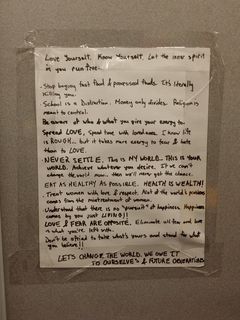 Love Yourself. Know Yourself. Let the inner spirit
in you run true.
- Stop buying fast food & processed foods. It's literally
killing you.
School is a Distraction. Money only divides. Religion is
meant to control.
Be aware of who & what you give your energy to.
Spread LOVE, Spend time with loved ones. I know life
is ROUGH.. but it takes more energy to fear & hate
than to LOVE
NEVER SETTLE. This is MY WORLD. THIS IS YOUR
WORLD. Achieve whatever you desire. If we don't
change the world now.. then we'll never get the chance.
EAT AS HEALTHY AS POSSIBLE. HEALTH IS WEALTH!
Treat women with love & respect. Most of the world's problems
comes from the mistreatment of women.
Understand that there is no "pursuit" of happiness. Happiness
comes by you just LIVING!!
LOVE & FEAR ARE OPPOSITE. Eliminate all fear and love
is what you're left with.
Don't be afraid to take what's yours and stand for what
you believe!!
LETS CHANGE THE WORLD. WE OWE IT
TO OURSELVES & FUTURE GENERATIONS